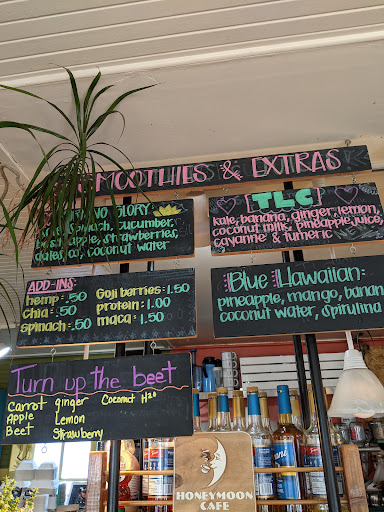 SMOOTHIES & EXTRAS
GLORY
spinach, cucumber,
apple, strawberries,
dates, coconut water
[TLC]
kale, banana, ginger, lemon,
coconut milk, pineapple juice,
cayanne & tumeric
ADD-INS
hemp .50
chia .50
spinach .50
Goji berries: 1.50
protein : 1.00
maca : 1.50
Blue Hawaiian:
pineapple, mango, banan
coconut water, spirulina
Turn up the beet
Carrot ginger Coconut H2O
Apple Lemon
Beet Strawberry
HONEYMOON
CAFE